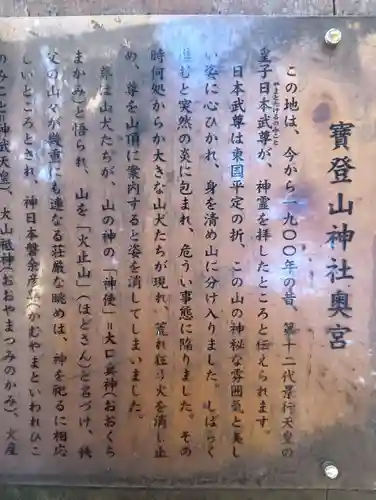 寳登山神社奥宮
この地は、今から一九〇〇年の昔、第十二代景行天皇の
皇子日本武尊が、神霊を拝したところと伝えられます。
やまとたけるのみこと
日本武尊は東国平定の折、この山の神秘な雰囲気と美し
い姿に心ひかれ、身を清め山に分け入りました。しばらく
進むと突然の炎に包まれ、危うい事態に陥りました。その
時何処からか大きな山犬たちが現れ、荒れ狂う火を消し止
め、尊を山頂に案内すると姿を消してしまいました。
尊は山犬たちが、山の神の「神使」=大口真神(おおくち
まかみ)と悟られ、山を「火止山」(ほどさん)と名づけ、秩
父の山々が幾重にも連なる荘厳な眺めは、神を祀るに相応
しいところとされ、神日本磐余彦尊(かむやまといわれひこ
のみこと=神武天皇)、大山祇神(おおやまつみのかみ)、火産